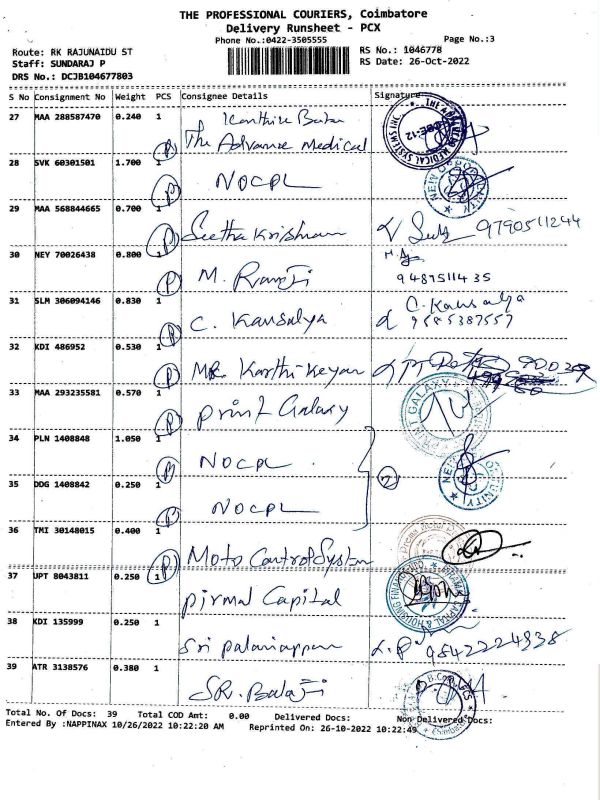 THE PROFESSIONAL COURIERS, Coimbatore
Delivery Runsheet - PCX
Phone No.:0422-3505555
Page No.:3
Route: RK RAJUNAIDU ST
RS No.: 1046778
Staff: SUNDARAJ P
RS Date: 26-Oct-2022
DRS No.: DCJB104677803
S No Consignment No Weight PCS Consignee Details Signature
27 MAA 288587470 0.240 1
The Advance Medical
28 SVK 60301501 1.700 1
P NOCPL
29 MAA 568844665 0.700 1
P Seetha Krishnan 9790511244
30 NEY 70026438 0.800 1
P M. Ramji 9487511435
31 SLM 306094146 0.830 1
P C. Kausalya C. Kausalya
9585387557
32 KDI 486952 0.530 1
P MR. Karthikeyan
33 MAA 293235581 0.570 1
P Print Galaxy PRINT GALAXY
34 PLN 1408848 1.050 1
P NOCPL
35 DDG 1408842 0.250 1
P NOCPL
36 TMI 30148015 0.400 1
P Moto Control System
37 UPT 8043811 0.250 1
P Pirmal Capital
38 KDI 135999 0.250 1
Sri Palaniappan 9842224938
39 ATR 3138576 0.380 1
SR. Balaji
Total No. Of Docs: 39 Total COD Amt: 0.00 Delivered Docs: Non Delivered Docs:
Entered By :NAPPINAX 10/26/2022 10:22:20 AM Reprinted On: 26-10-2022 10:22:49